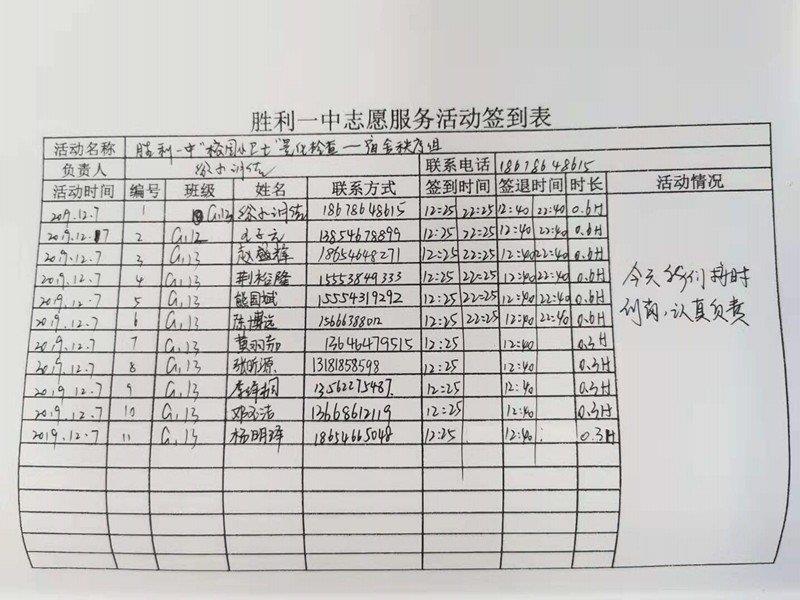 胜利一中志愿服务活动签到表
活动名称 胜利一中"校园小卫士"量化检查—宿舍秩序组
负责人 联系电话 18678648615
活动时间 编号 班级 姓名 联系方式 签到时间 签退时间 时长 活动情况
2019.12.7 1 G1,12 18678648615 12:25 22:25 12:40 22:40 0.6H
2019.12.7 2 G1,12 13854678899 12:25 22:25 12:40 22:40 0.6H
2019.12.7 3 G1,13 18654648271 12:25 22:25 12:40 22:40 0.6H
2019.12.7 4 G1,13 荆裕隆 15553849333 12:25 22:25 12:40 22:40 0.6H
2019.12.7 5 G1,13 熊国斌 15554319292 12:25 22:25 12:40 22:40 0.6H
2019.12.7 6 G1,13 陈博远 12:25 22:25 12:40 22:40 0.6H
2019.12.7 7 G1,13 13646479515 12:25 12:40 0.3H
2019.12.7 8 G1,13 张昕源 13181858598 12:25 12:40 0.3H
2019.12.7 9 G1,13 13562275487 12:25 12:40 0.3H
2019.12.7 10 G1,13 13668612119 12:25 12:40 0.3H
2019.12.7 11 G1,13 18654665048 12:25 12:40 0.3H
今天我们按时
到岗,认真负责